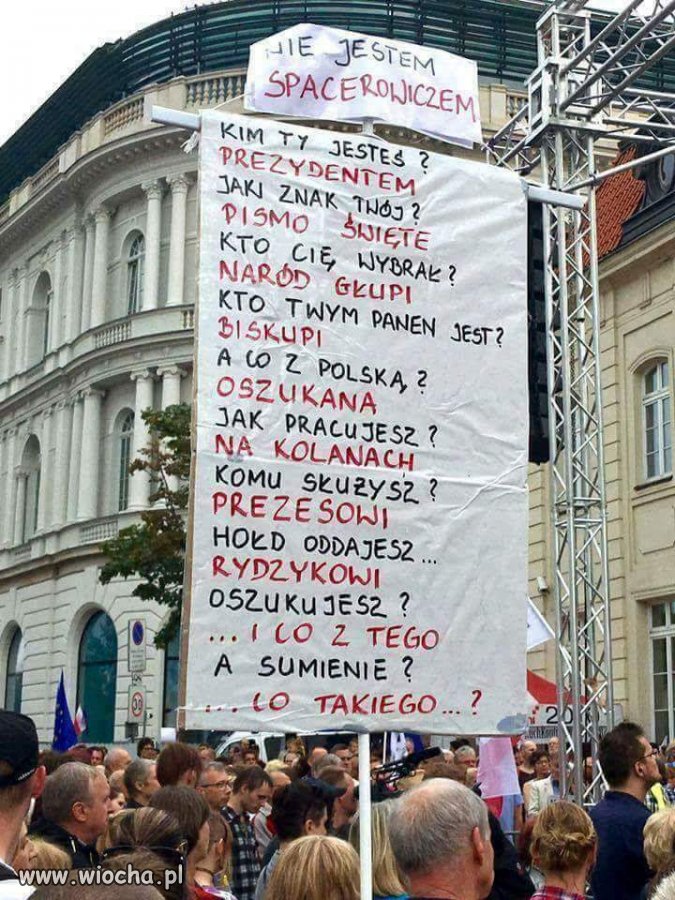 NIE JESTEM
SPACEROWICZEM
KIM TY JESTEŚ?
PREZYDENTEM
JAKI ZNAK TWÓJ?
PISMO ŚWIĘTE
KTO CIĘ WYBRAŁ?
NARÓD GŁUPI
KTO TWYM PANEN JEST?
BISKUPI
A CO Z POLSKĄ?
OSZUKANA
JAK PRACUJESZ?
NA KOLANACH
KOMU SŁUŻYSZ?
PREZESOWI
HOŁD ODDAJESZ...
RYDZYKOWI
OSZUKUJESZ?
...I CO Z TEGO
A SUMIENIE?
...CO TAKIEGO...?
30
www.wiocha.pl